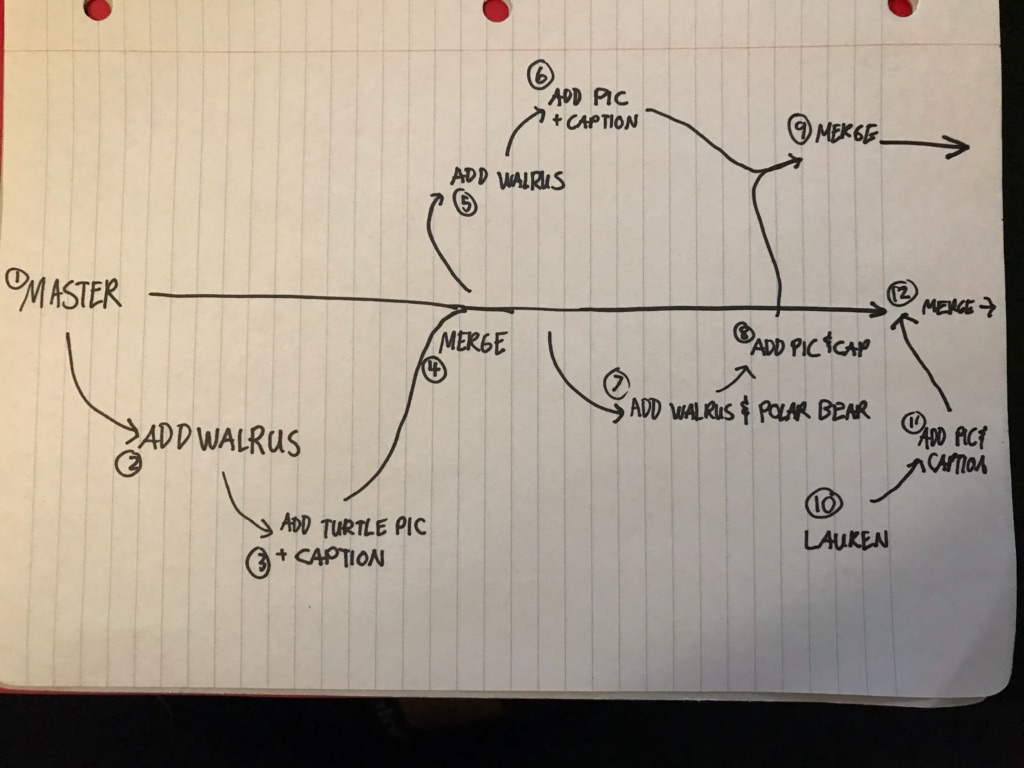 ① MASTER
② ADD WALRUS
③ ADD TURTLE PIC
+ CAPTION
④ MERGE
⑤ ADD WALRUS
⑥ ADD PIC
+ CAPTION
⑦ ADD WALRUS & POLAR BEAR
⑧ ADD PIC & CAP
⑨ MERGE
⑩ LAUREN
⑪ ADD PIC &
CAPTION
⑫ MERGE →